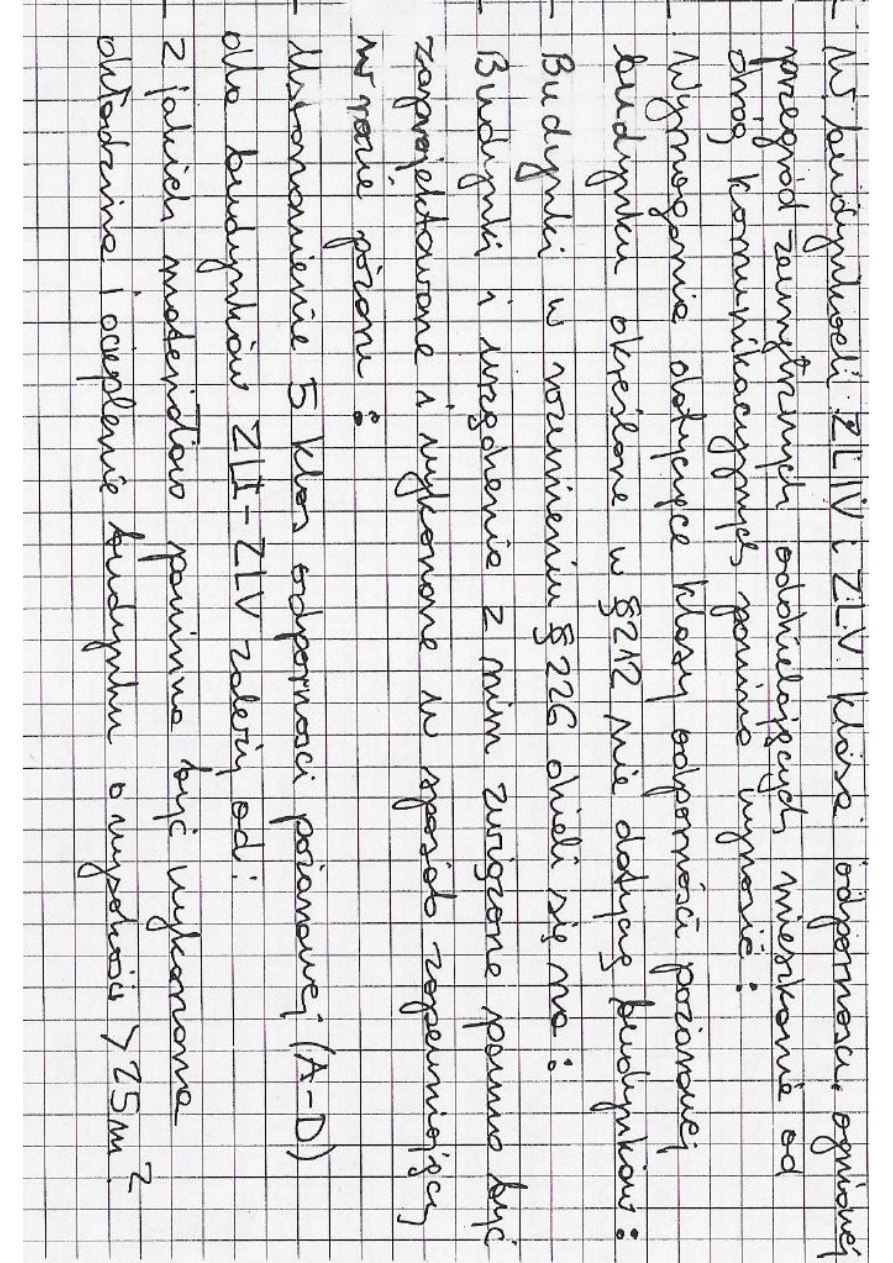 - W budynkach ZLIV i ZLV klasa odporności ogniowej
przegród zewnętrznych oddzielających mieszkanie od
dróg komunikacyjnych powinna wynosić:
- Wymagania dotyczące klasy odporności pożarowej
budynku określone w §212 nie dotyczą budynków:
- Budynki w rozumieniu §226 dzieli się na:
- Budynki i urządzenia z nim związane powinno być
zaprojektowane i wykonane w sposób zapewniający
w razie pożaru:
- Ustanowienie 5 klas odporności pożarowej (A-D)
dla budynków ZLI-ZLV zależy od:
- Z jakich materiałów powinna być wykonana
okładzina i ocieplenie budynku o wysokości >25m?